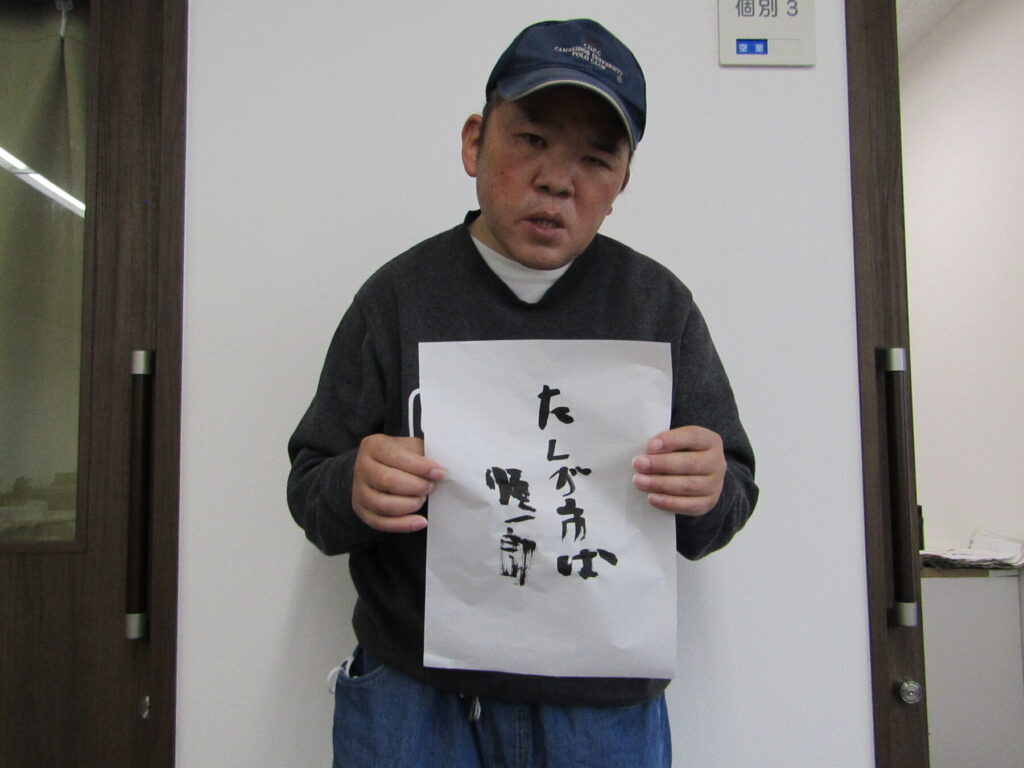 個別 3
空室
CAMBRIDGE UNIVERSITY
POLO CLAB
たしが市は
慎一郎